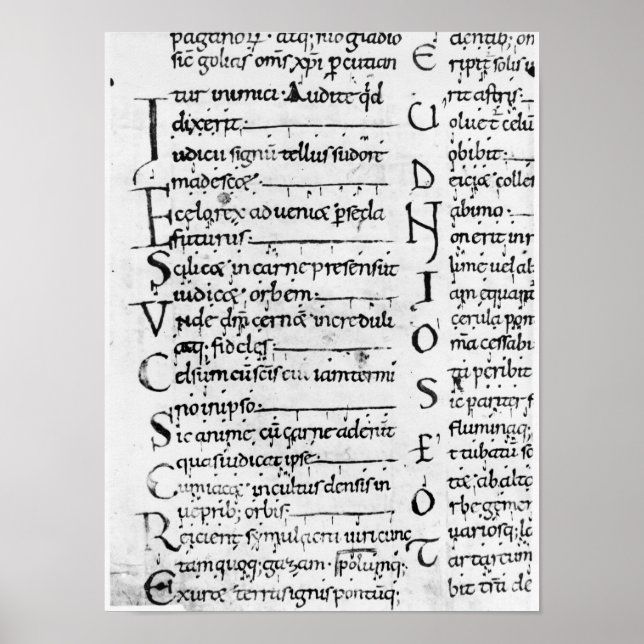 paganorꝝ. atq; suo gladio
sic golias om̄s xp̄i ꝑcutian
tur inimici. Audite q̇d
dixerit.
Iudicii signū tellus sudore
madescet.
E celo rex adveniet ꝑ secla
futurus.
Scilicet in carne presens ut
iudicet orbem.
Unde dm̄ cernent increduli
atq; fideles.
Celsum cū scis eui iam termi
no in ipso.
Sic anime cū carne aderunt
quas iudicat ipse.
Cum iacet incultus densis in
vepribꝫ orbis.
Reicient symulacra viri cunc
tam quoq; gazam.
Exuret terras ignis pontūq;
polumq;
E
ripit solis
rit astris.
U
olvet celū
obibit.
D
eiciet colle
ab imo.
N
on erit in r
I
am equant
cerula pon
O
ma cessabi
ti peribit
S
ic pariter f
fluminaq;
E
t tubatū so
tet ab alto
O
rbe gemen
variosq; l
T
artareum
bit